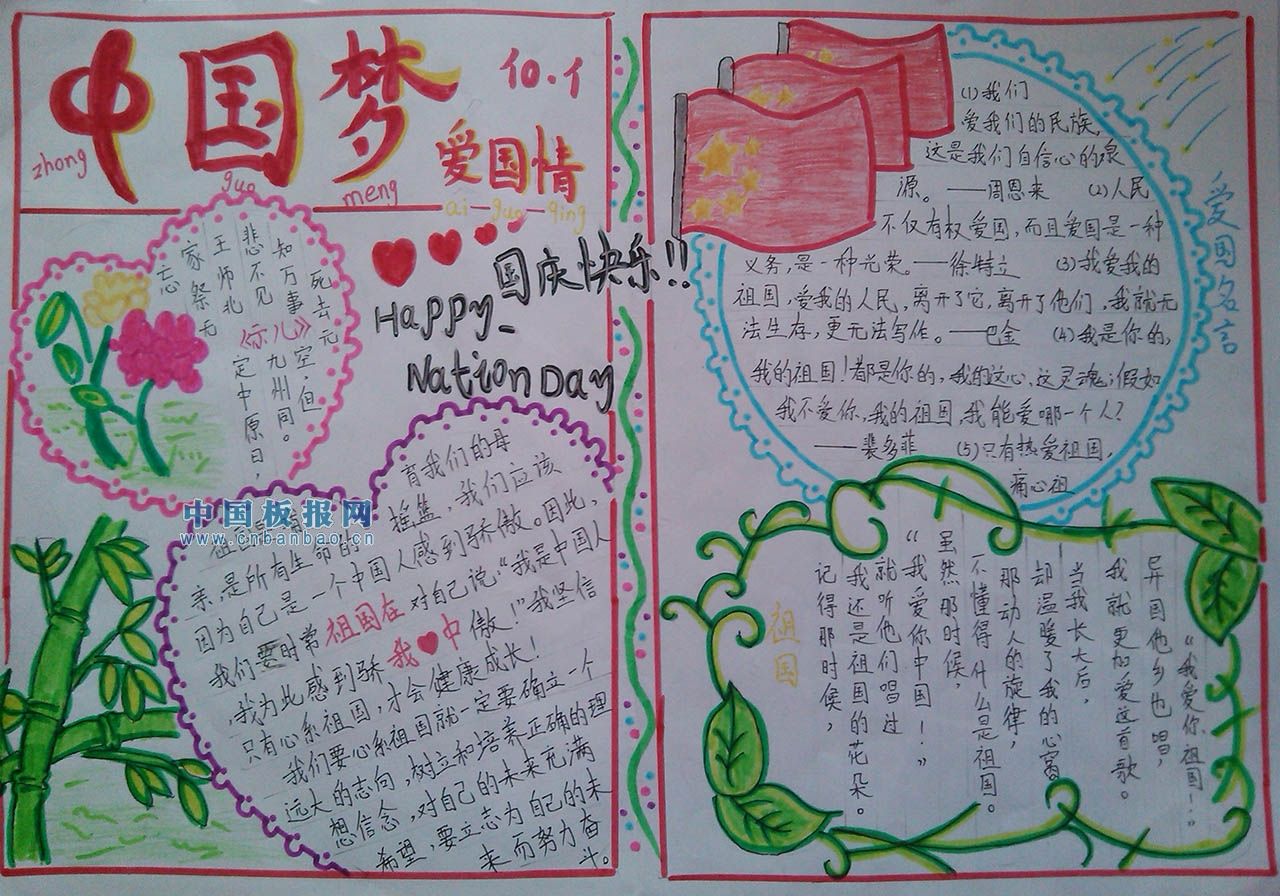 中国梦
zhong guo meng
10.1
爱国情
ai-guo-qing
国庆快乐!!
Happy_
Nation Day
《示儿》
死去元
知万事空，但
悲不见九州同。
王师北定中原日，
家祭无
忘
中国板报网
www.cnbanbao.cn
祖国是
育我们的母
亲,是所有生命的摇篮，我们应该
因为自己是一个中国人感到骄傲。因此，
我们要时常对自己说“我是中国人
,我为此感到骄傲！”我坚信
只有心系祖国，才会健康成长！
我们要心系祖国就一定要确立一个
远大的志向，树立和培养正确的理
想信念，对自己的未来充满
希望，要立志为自己的未
来而努力奋
斗。
祖国在
我❤中
爱国名言
(1)我们
爱我们的民族，
这是我们自信心的泉
源。——周恩来 (2)人民
不仅有权爱国，而且爱国是一种
义务，是一种光荣。——徐特立 (3)我爱我的
祖国，爱我的人民，离开了它，离开了他们，我就无
法生存，更无法写作。——巴金 (4)我是你的，
我的祖国！都是你的，我的这心、这灵魂；假如
我不爱你，我的祖国，我能爱哪一个人？
——裴多菲 (5)只有热爱祖国，
痛心祖
祖国
记得那时候，
我还是祖国的花朵
就听他们唱过
“我爱你中国！”
虽然那时候，
不懂得什么是祖国。
那动人的旋律，
却温暖了我的心窝
当我长大后，
我就更加爱这首歌。
异国他乡也唱，
“我爱你，祖国！”